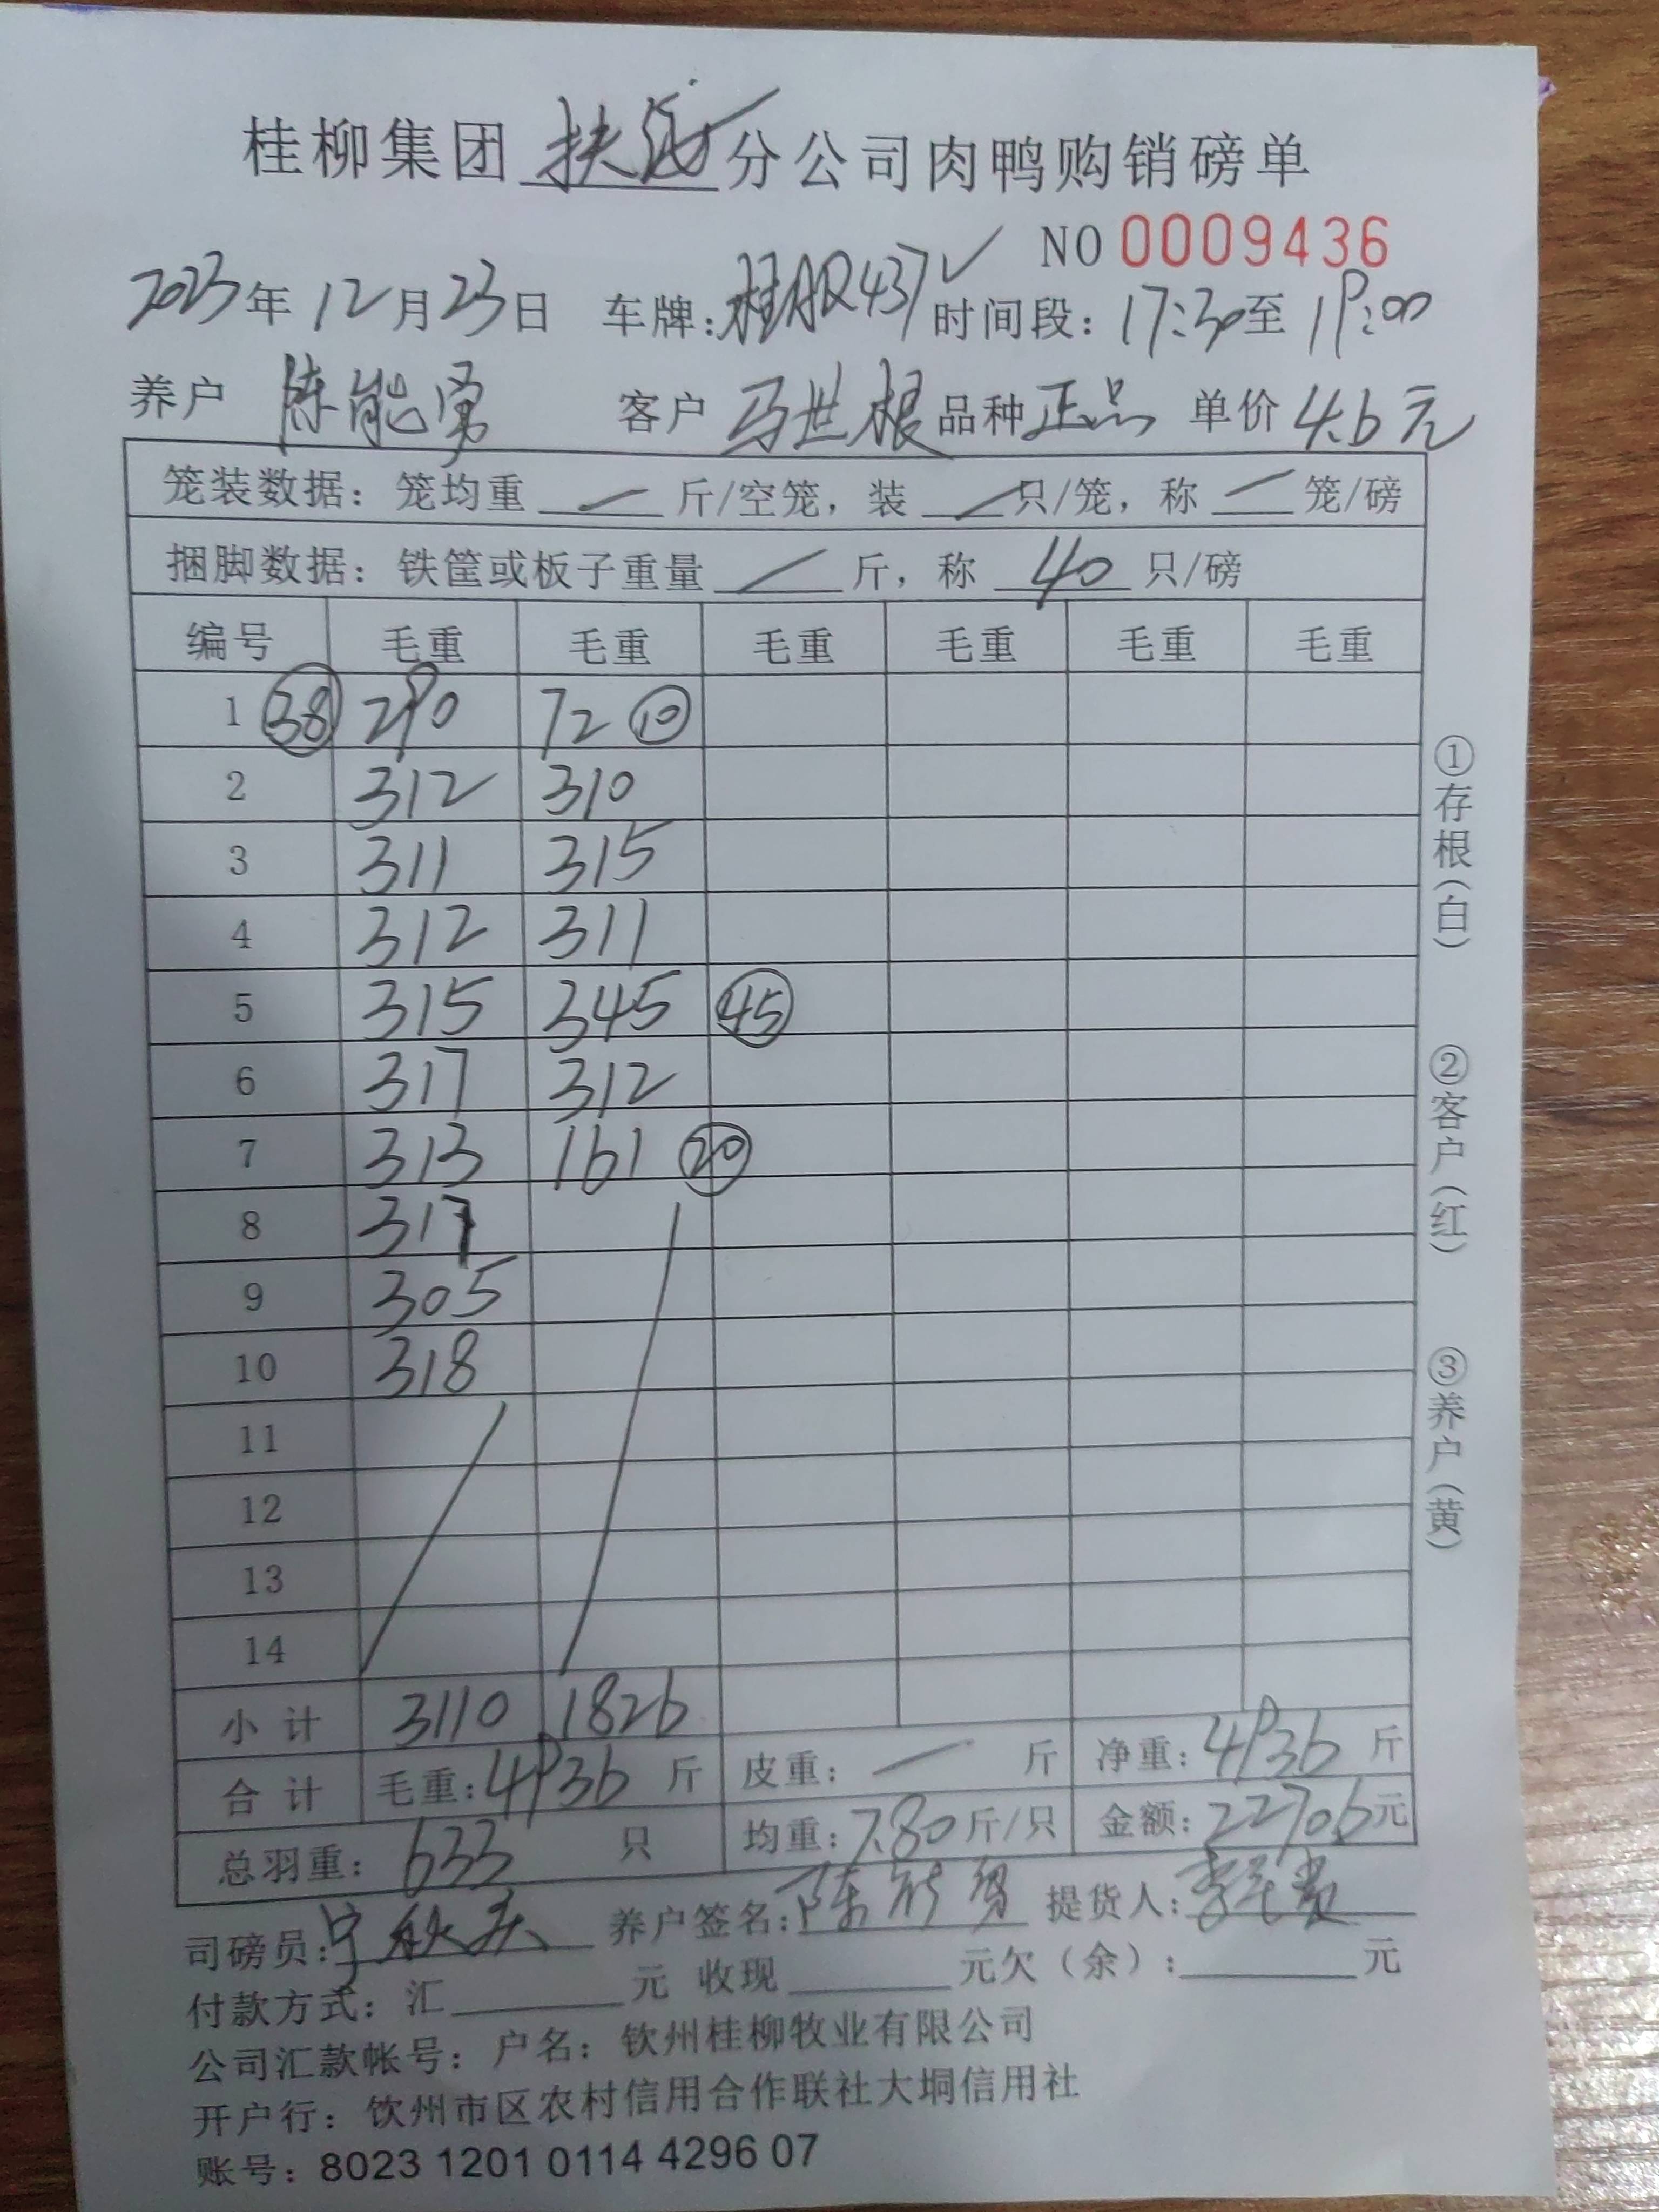 桂柳集团 扶 分公司肉鸭购销磅单
NO 0009436
2023年 12月23日 车牌:桂AR437 时间段: 17:30至 19:00
养户 陈能勇 客户 马世根 品种 正品 单价 4.6元
笼装数据: 笼均重 — 斤/空笼, 装 — 只/笼, 称 — 笼/磅
捆脚数据: 铁筐或板子重量 — 斤, 称 40 只/磅
编号 毛重 毛重 毛重 毛重 毛重 毛重
1 38 290 72 10
2 312 310
3 311 315
4 312 311
5 315 345 45
6 317 312
7 313 161 20
8 317
9 305
10 318
11
12
13
14
小计 3110 1826
合计 毛重: 4936 斤 皮重: — 斤 净重: 4936 斤
总羽重: 633 只 均重: 7.80 斤/只 金额: 22706元
司磅员: 宁秋 养户签名: 陈能勇 提货人: 李
付款方式: 汇 元 收现 元欠(余): 元
公司汇款帐号: 户名: 钦州桂柳牧业有限公司
开户行: 钦州市区农村信用合作联社大垌信用社
账号: 8023 1201 0114 4296 07
①存根(白)
②客户(红)
③养户(黄)